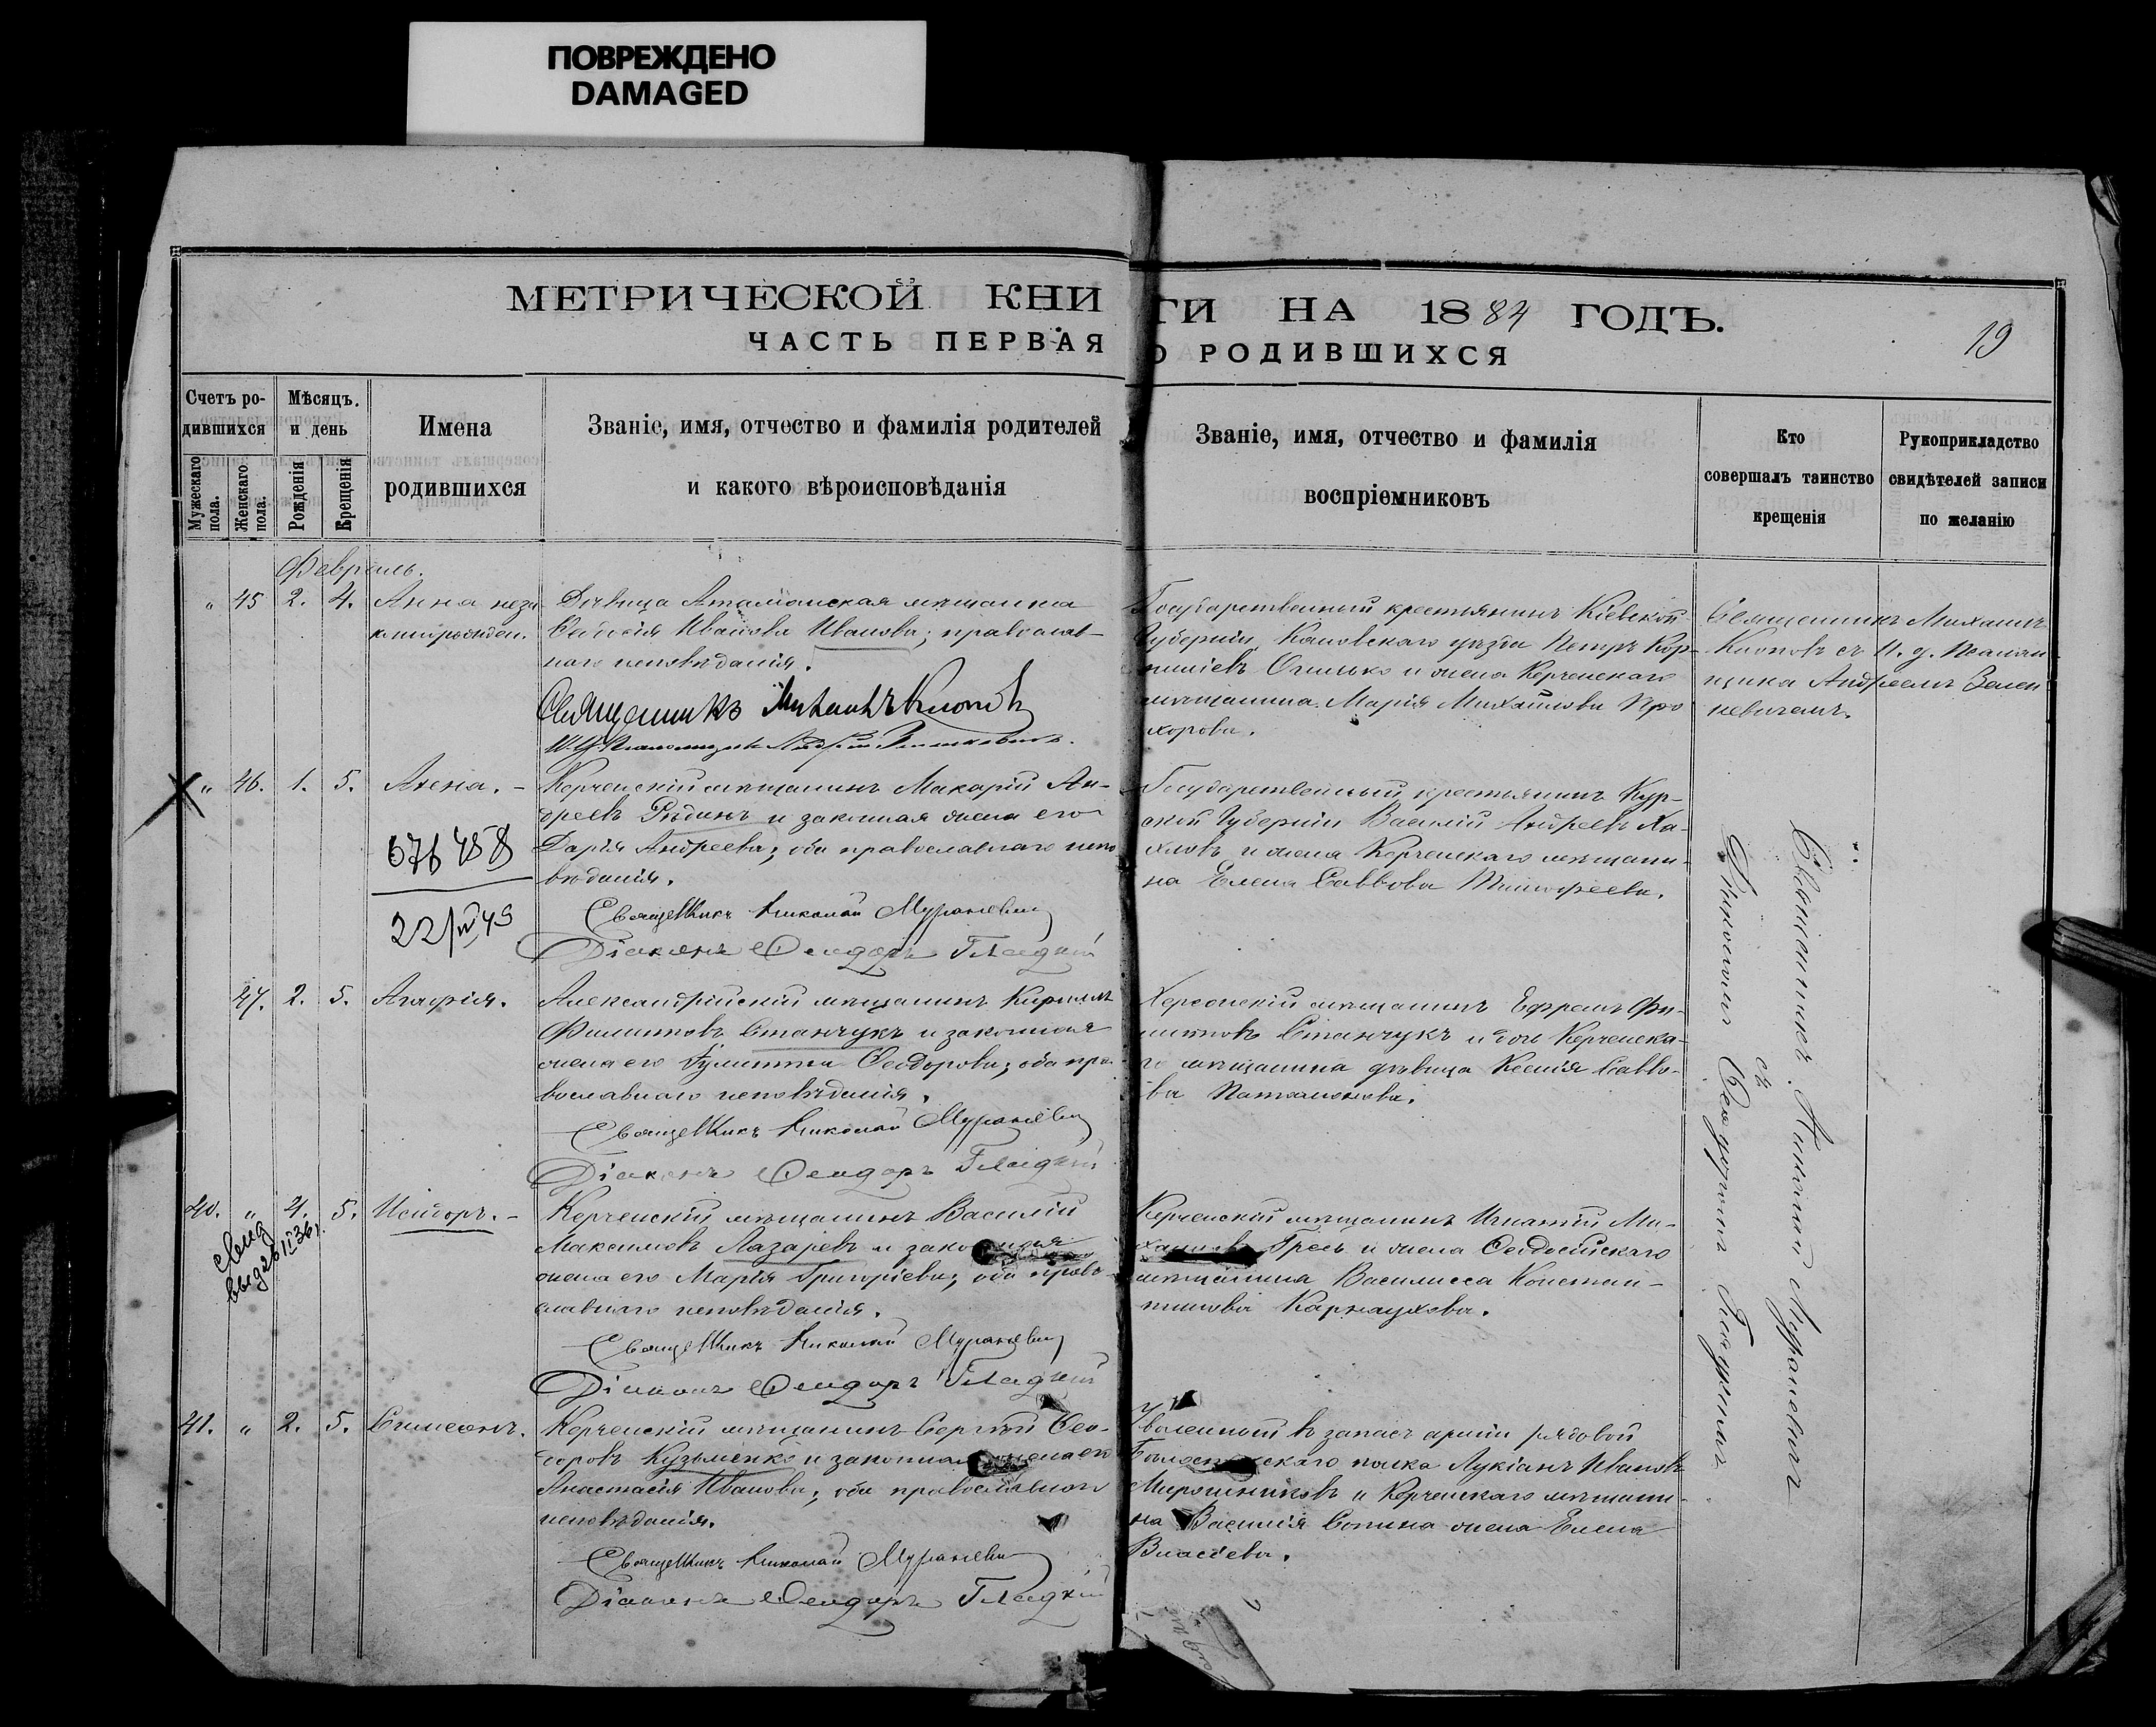 ПОВРЕЖДЕНО
DAMAGED
МЕТРИЧЕСКОЙ КНИГИ НА 1884 ГОДЪ.
ЧАСТЬ ПЕРВАЯ О РОДИВШИХСЯ
19
Счетъ родившихся
Мужескаго пола.
Женскаго пола.
Мѣсяцъ. и день
Рожденія
Крещенія
Имена
родившихся
Званіе, имя, отчество и фамилія родителей
и какого вѣроисповѣданія
Званіе, имя, отчество и фамилія
воспріемниковъ
Кто
совершалъ таинство
крещенія
Рукоприкладство
свидѣтелей записи
по желанію
Февраль.
" 45 2. 4. Анна
Дѣвица мѣщанка
Иванова Иванова; православ-
наго исповѣданія.
Священникъ Михаилъ Клоповъ
Государственный крестьянинъ Кіевской
Губерніи, Каневскаго уѣзда Петръ Кор-
ниліевъ и жена Керченскаго
мѣщанина Марія Михайлова Про
хорова.
Священникъ Михаилъ
Клоповъ съ И. д. Псалом
щика Андреемъ Зелен
кевичемъ.
" 46. 1. 5.
Керченскій мѣщанинъ Макарій Ан-
дреевъ Рѣдинъ и законная жена его
Дарія Андреева; оба православнаго испо
вѣданія.
Священникъ Николай Мураневич
Діаконъ Ѳеодоръ Гладкій
22/IV 49
Государственный крестьянинъ Кур-
ской Губерніи Василій Андреевъ Ха-
хловъ и жена Керченскаго мѣщани-
на Елена Саввова Тимофеева.
47. 2. 5. Агафія.
Александрійскій мѣщанинъ Кириллъ
Филиповъ Станчукъ и законная
жена его Ѳеодорова; оба пра-
вославнаго исповѣданія.
Священникъ Николай Мураневич
Діаконъ Ѳеодоръ Гладкій
Херсонскій мѣщанинъ Ефремъ Фи-
липовъ Станчукъ и дочь Керченска-
го мѣщанина дѣвица Ксенія Савво-
ва
40. " 4. 5. Исидоръ.
выд 26 II 36 г.
Керченскій мѣщанинъ Василій
Максимовъ Лазаревъ и законная
жена его Марія Григоріева; оба право-
славнаго исповѣданія.
Священникъ Николай Мураневич
Діаконъ Ѳеодоръ Гладкій
Керченскій мѣщанинъ Игнатій Ми-
хаиловъ и жена Ѳеодосійскаго
мѣщанина Василисса Констан-
тинова Карнаухова.
41. " 2. 5. Симеонъ.
Керченскій мѣщанинъ Сергѣй Ѳео-
доровъ Кузьменко и законная жена его
Анастасія Иванова; оба православнаго
исповѣданія.
Священникъ Николай Мураневич
Діаконъ Ѳеодоръ Гладкій
Уволенный въ запасъ арміи рядовой
полка Лукіанъ Ивановъ
Мирошниковъ и Керченскаго мѣщани-
на Василія жена Елена
Власіева.
Священникъ Николай Мураневичъ
съ
Діакономъ Ѳеодоромъ Гладкимъ